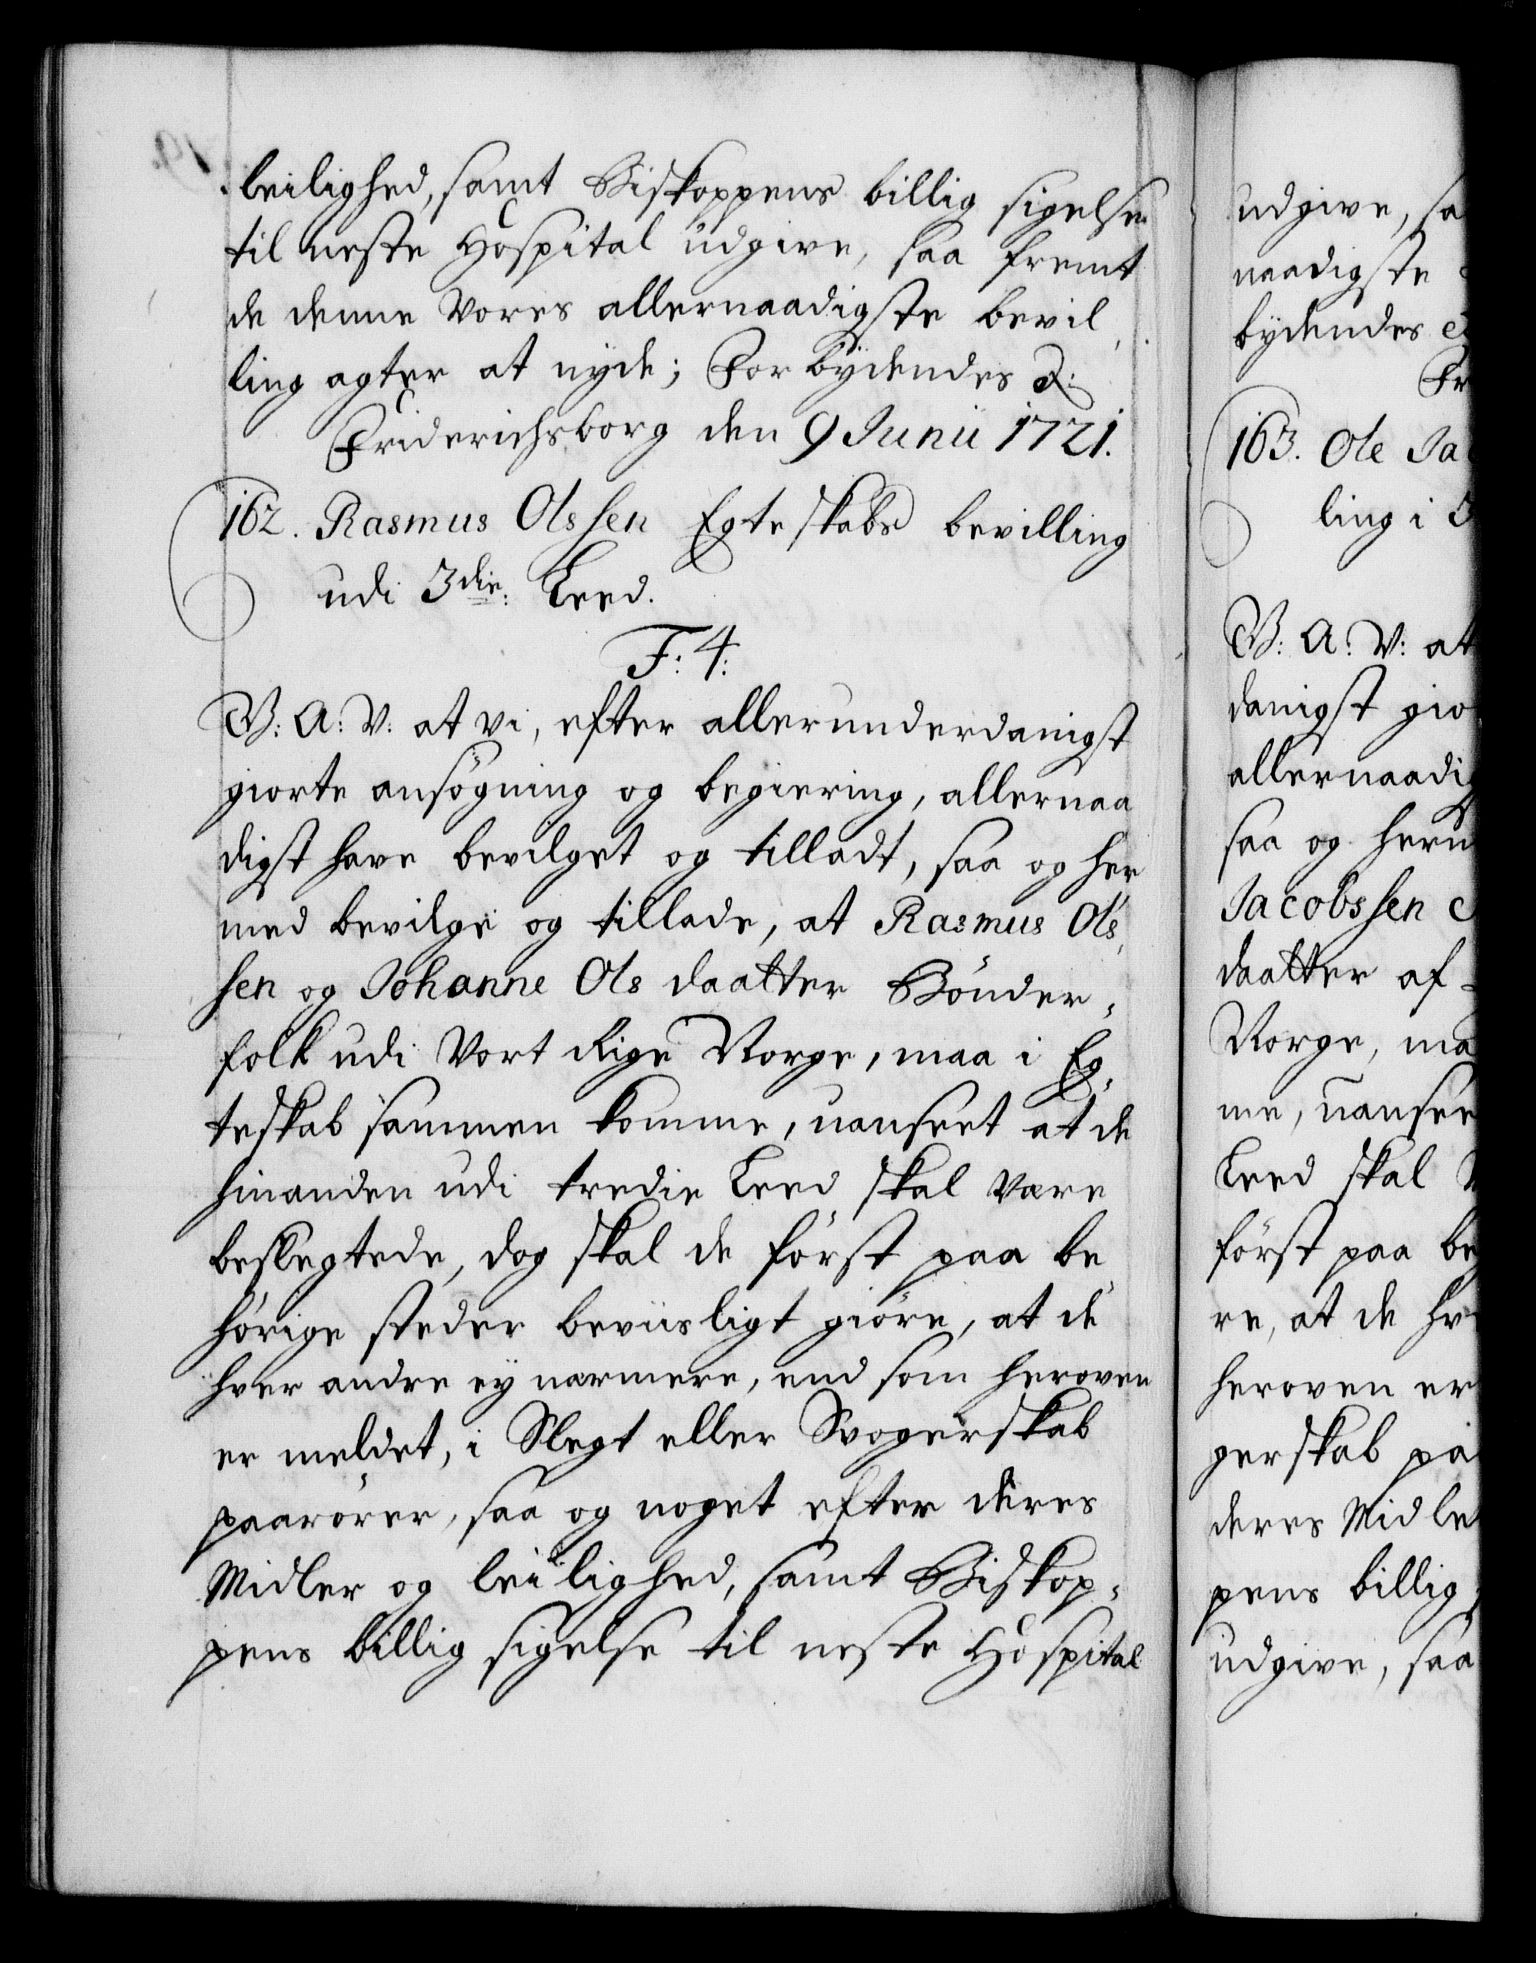 leilighed, samt Biskoppens billig sigelse
til neste Hospital udgive, saa fremt
de denne Vores allernaadigste bevil
ling agter at nyde; Forbydendes &:
Friderichsborg den 9 Junii 1721.
162. Rasmus Olssen Egteskabs bevilling
udi 3die: Leed.
F: 4:
V: A: V: at vi, efter allerunderdanigst
giorte ansögning og begiering, allernaa
digst have bevilget og tilladt, saa og her
med bevilge og tillade, at Rasmus Ols,
sen og Johanne Ols daatter Bönder,
folk udi Vort Rige Norge, maa i Eg,
teskab sammen komme, uanseet at de
hinanden udi tredie Leed skal være
beslegtede, dog skal de först paa be
hörige steder beviisligt giöre, at de
hver andre ey nærmere, end som heroven
er meldet, i Slegt eller Svogerskab
paarörer, saa og noget efter deres
Midler og leilighed, samt Biskop,
pens billig sigelse til neste Hospital
udgive, sa
naadigste
bydendes
Fr
163. Ole Ja
ling i 3
V: A: V: at
danigst gio
allernaadig
saa og herm
Jacobssen
daatter af
Norge, ma
me, uansee
Leed skal
först paa be
re, at de hv
heroven er
gerskab pa
deres Midle
pens billig
udgive, saa